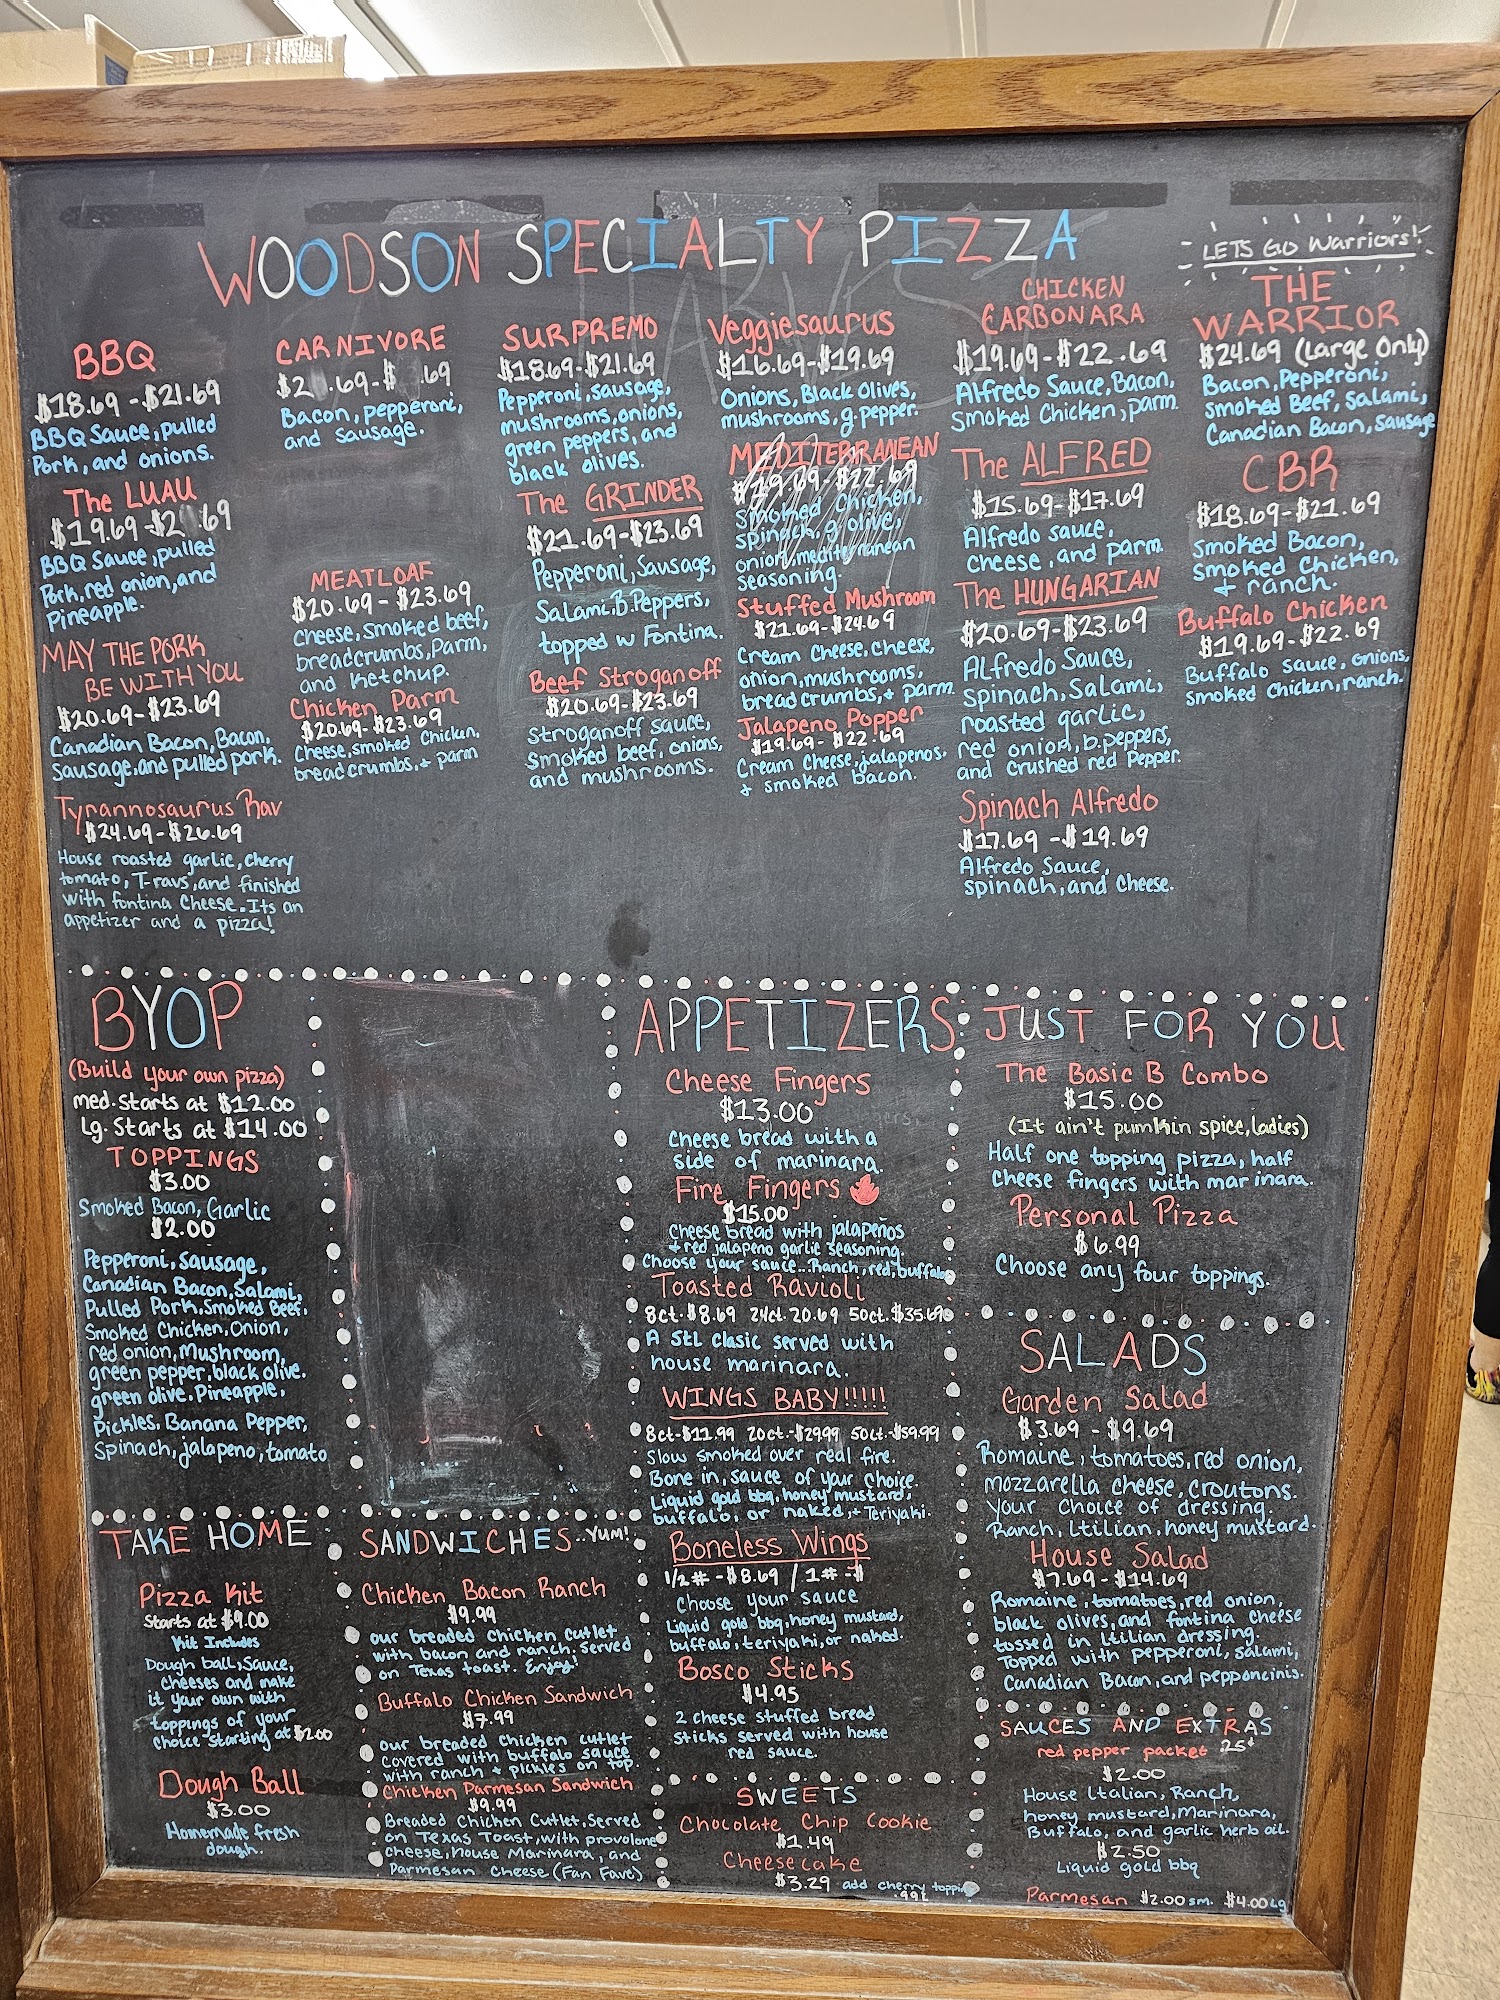 WOODSON SPECIALTY PIZZA
LETS GO Warriors!
BBQ
$18.69 - $21.69
BBQ Sauce, pulled
Pork, and onions.
The LUAU
$19.69 - $2 .69
BBQ Sauce, pulled
Pork, red onion, and
Pineapple.
MAY THE PORK
BE WITH YOU
$20.69 - $23.69
Canadian Bacon, Bacon,
Sausage, and pulled pork.
Tyrannosaurus Rav
$24.69 - $26.69
House roasted garlic, cherry
tomato, T-ravs, and finished
with fontina cheese. Its an
appetizer and a pizza!
CARNIVORE
$2 .69 - $ .69
Bacon, pepperoni,
and Sausage.
MEATLOAF
$20.69 - $23.69
Cheese, smoked beef,
breadcrumbs, Parm,
and ketchup.
Chicken Parm
$20.69 - $23.69
Cheese, smoked chicken,
breadcrumbs, + parm
SURPREMO
$18.69 - $21.69
Pepperoni, sausage,
mushrooms, onions,
green peppers, and
black olives.
The GRINDER
$21.69 - $23.69
Pepperoni, Sausage,
Salami, B. Peppers,
topped w Fontina.
Beef Stroganoff
$20.69 - $23.69
Stroganoff sauce,
smoked beef, onions,
and mushrooms.
Veggiesaurus
$16.69 - $19.69
Onions, Black Olives,
mushrooms, g. pepper.
MEDITERRANEAN
$19.69 - $22.69
Smoked Chicken,
spinach, g. olive,
onion, mediterranean
seasoning.
Stuffed Mushroom
$21.69 - $24.69
Cream Cheese, cheese,
onion, mushrooms,
breadcrumbs, + parm
Jalapeno Popper
$19.69 - $22.69
Cream Cheese, jalapenos,
+ smoked bacon.
CHICKEN
CARBONARA
$19.69 - $22.69
Alfredo Sauce, Bacon,
Smoked Chicken, parm.
The ALFRED
$15.69 - $17.69
Alfredo sauce,
cheese, and parm.
The HUNGARIAN
$20.69 - $23.69
Alfredo Sauce,
spinach, Salami,
roasted garlic,
red onion, b. peppers,
and crushed red Pepper.
Spinach Alfredo
$17.69 - $19.69
Alfredo Sauce,
spinach, and cheese.
THE
WARRIOR
$24.69 (Large Only)
Bacon, Pepperoni,
smoked Beef, Salami,
Canadian Bacon, sausage
CBR
$18.69 - $21.69
Smoked Bacon,
Smoked Chicken,
+ ranch.
Buffalo Chicken
$19.69 - $22.69
Buffalo sauce, onions,
smoked chicken, ranch.
BYOP
(Build your own pizza)
med. starts at $12.00
Lg. Starts at $14.00
TOPPINGS
$3.00
Smoked Bacon, Garlic
$2.00
Pepperoni, Sausage,
Canadian Bacon, Salami,
Pulled Pork, Smoked Beef,
Smoked Chicken, Onion,
red onion, Mushroom,
green pepper, black olive.
green olive, Pineapple,
Pickles, Banana Pepper,
Spinach, jalapeno, tomato
APPETIZERS
Cheese Fingers
$13.00
Cheese bread with a
side of marinara.
Fire Fingers
$15.00
Cheese bread with jalapeños
+ red jalapeno garlic seasoning.
Choose your sauce... Ranch, red, buffalo
Toasted Ravioli
8ct. $8.69 24ct. 20.69 50ct. $35.69
A StL Clasic served with
house marinara.
WINGS BABY!!!!!
8ct-$11.99 20ct.-$29.99 50ct.-$59.99
Slow smoked over real fire.
Bone in, sauce of your choice.
Liquid gold bbq, honey mustard,
buffalo, or naked, + Teriyaki.
Boneless Wings
1/2 # - $8.69 / 1 # - $
Choose your sauce
Liquid gold bbq, honey mustard,
buffalo, teriyaki, or naked.
Bosco Sticks
$4.95
2 cheese stuffed bread
sticks served with house
red sauce.
JUST FOR YOU
The Basic B Combo
$15.00
(It ain't pumkin spice, ladies)
Half one topping pizza, half
cheese fingers with marinara.
Personal Pizza
$6.99
Choose any four toppings.
SALADS
Garden Salad
$3.69 - $9.69
Romaine, tomatoes, red onion,
mozzarella cheese, croutons.
Your choice of dressing.
Ranch, Itilian, honey mustard.
House Salad
$7.69 - $14.69
Romaine, tomatoes, red onion,
black olives, and fontina cheese
tossed in Itilian dressing.
Topped with pepperoni, salami,
Canadian Bacon, and pepponcinis.
TAKE HOME
Pizza Kit
Starts at $9.00
Kit Includes
Dough ball, Sauce,
cheeses and make
it your own with
toppings of your
choice starting at $2.00
Dough Ball
$3.00
Homemade fresh
dough.
SANDWICHES..YUM!
Chicken Bacon Ranch
$9.99
our breaded Chicken cutlet
with bacon and ranch. Served
on Texas toast. Enjoy!
Buffalo Chicken Sandwich
$7.99
our breaded Chicken cutlet
covered with buffalo sauce
with ranch + pickles on top.
Chicken Parmesan Sandwich
$9.99
Breaded Chicken Cutlet, Served
on Texas Toast, with provolone
cheese, house Marinara, and
Parmesan Cheese (Fan Fave)
SWEETS
Chocolate Chip Cookie
$1.49
Cheesecake
$3.29 add cherry topping
.99¢
SAUCES AND EXTRAS
red pepper packet .25¢
$2.00
House Italian, Ranch,
honey mustard, Marinara,
Buffalo, and garlic herb oil.
$2.50
Liquid gold bbq
Parmesan $2.00 sm. $4.00 Lg